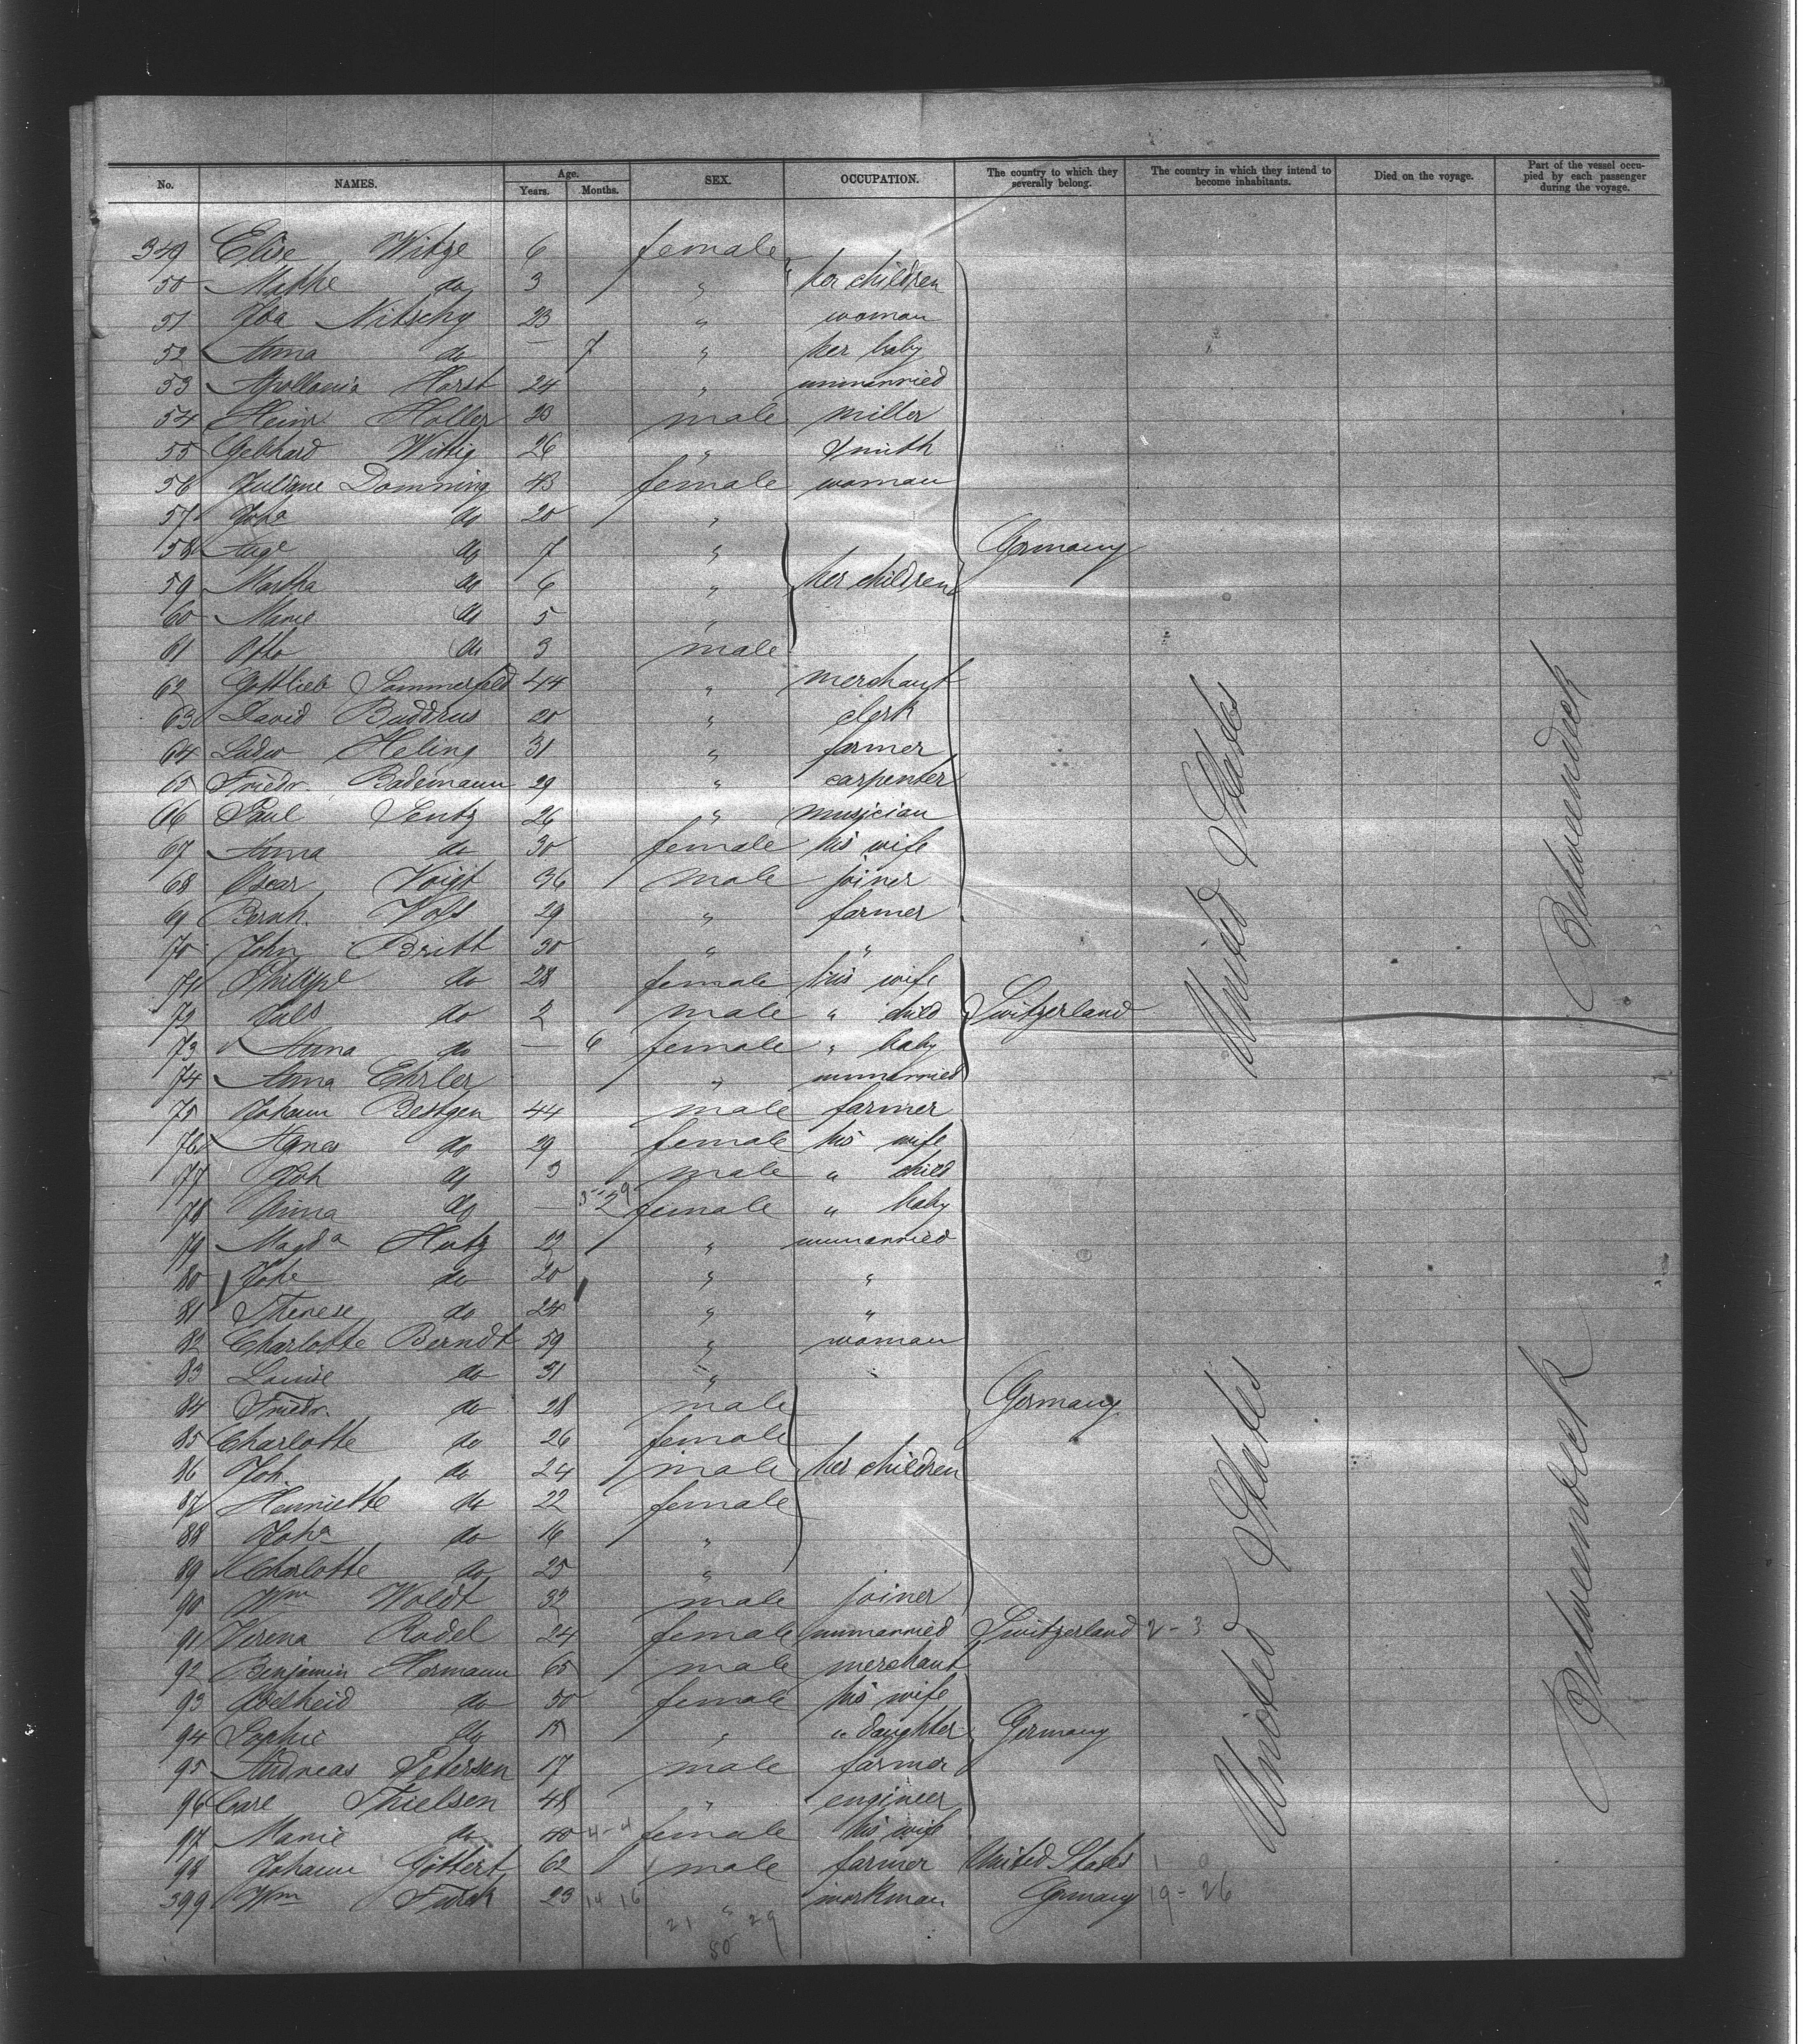 No. NAMES. Age. Years. Months. SEX. OCCUPATION. The country to which they severally belong. The country in which they intend to become inhabitants. Died on the voyage. Part of the vessel occupied by each passenger during the voyage.
349 Elise Witze 6 female
50 do 3 " her children
51 Nitschy 23 " woman
52 Anna do — 7 " her baby
53 Apollonia Horst 24 " unmarried
54 Heinr Holler 23 male miller
55 Gebhard Wittig 26 " Smith
56 Juliane Domning 43 female woman
57 Joha do 20 "
58 Auge do 7 " Germany
59 Martha do 6 " her children
60 Marie do 5 "
61 Otto do 3 male
62 Gottlieb Sommerfeld 44 " merchant
63 David Buddrus 20 " clerk
64 Ludw Heling 31 " farmer
65 Friedr. Bademann 29 " carpenter
66 Paul Lentz 26 " musician
67 Anna do 30 female his wife
68 Oscar Voigt 36 male joiner
69 Bernh. Voss 29 " farmer
70 John Britt 30 " "
71 Philippe do 28 female his wife
72 Juls do 2 male " child Switzerland United States Betweendeck
73 Anna do — 6 female " baby
74 Anna Ehrler " unmarried
75 Johann Bestgen 44 male farmer
76 Agnes do 29 female his wife
77 Joh do 3 male " child
78 Anna do — 9 female " baby
79 Magda Hutz 22 " unmarried
80 Johe do 20 " "
81 Therese do 24 " "
82 Charlotte Berndt 59 " woman
83 Louise do 31 "
84 Friedr. do 28 male Germany
85 Charlotte do 26 female
86 Joh do 24 male her children
87 Henriette do 22 female
88 Joha do 16 "
89 Charlotte do 25 "
90 Wm Woldt 32 male joiner
91 Verena Rodel 24 female unmarried Switzerland 2-3
92 Benjamin Hermann 65 male merchant
93 Adelheid do 50 female his wife
94 Sophie do 15 " " daughter Germany
95 Andreas Petersen 17 male farmer
96 Carl Thielsen 48 " engineer
97 Marie do 40 4-4 female his wife United States Betweendeck
98 Johann Göttert 62 male farmer United States 1 0
399 Wm Turck 23 14 16 " workman Germany 19-26
21 29
50